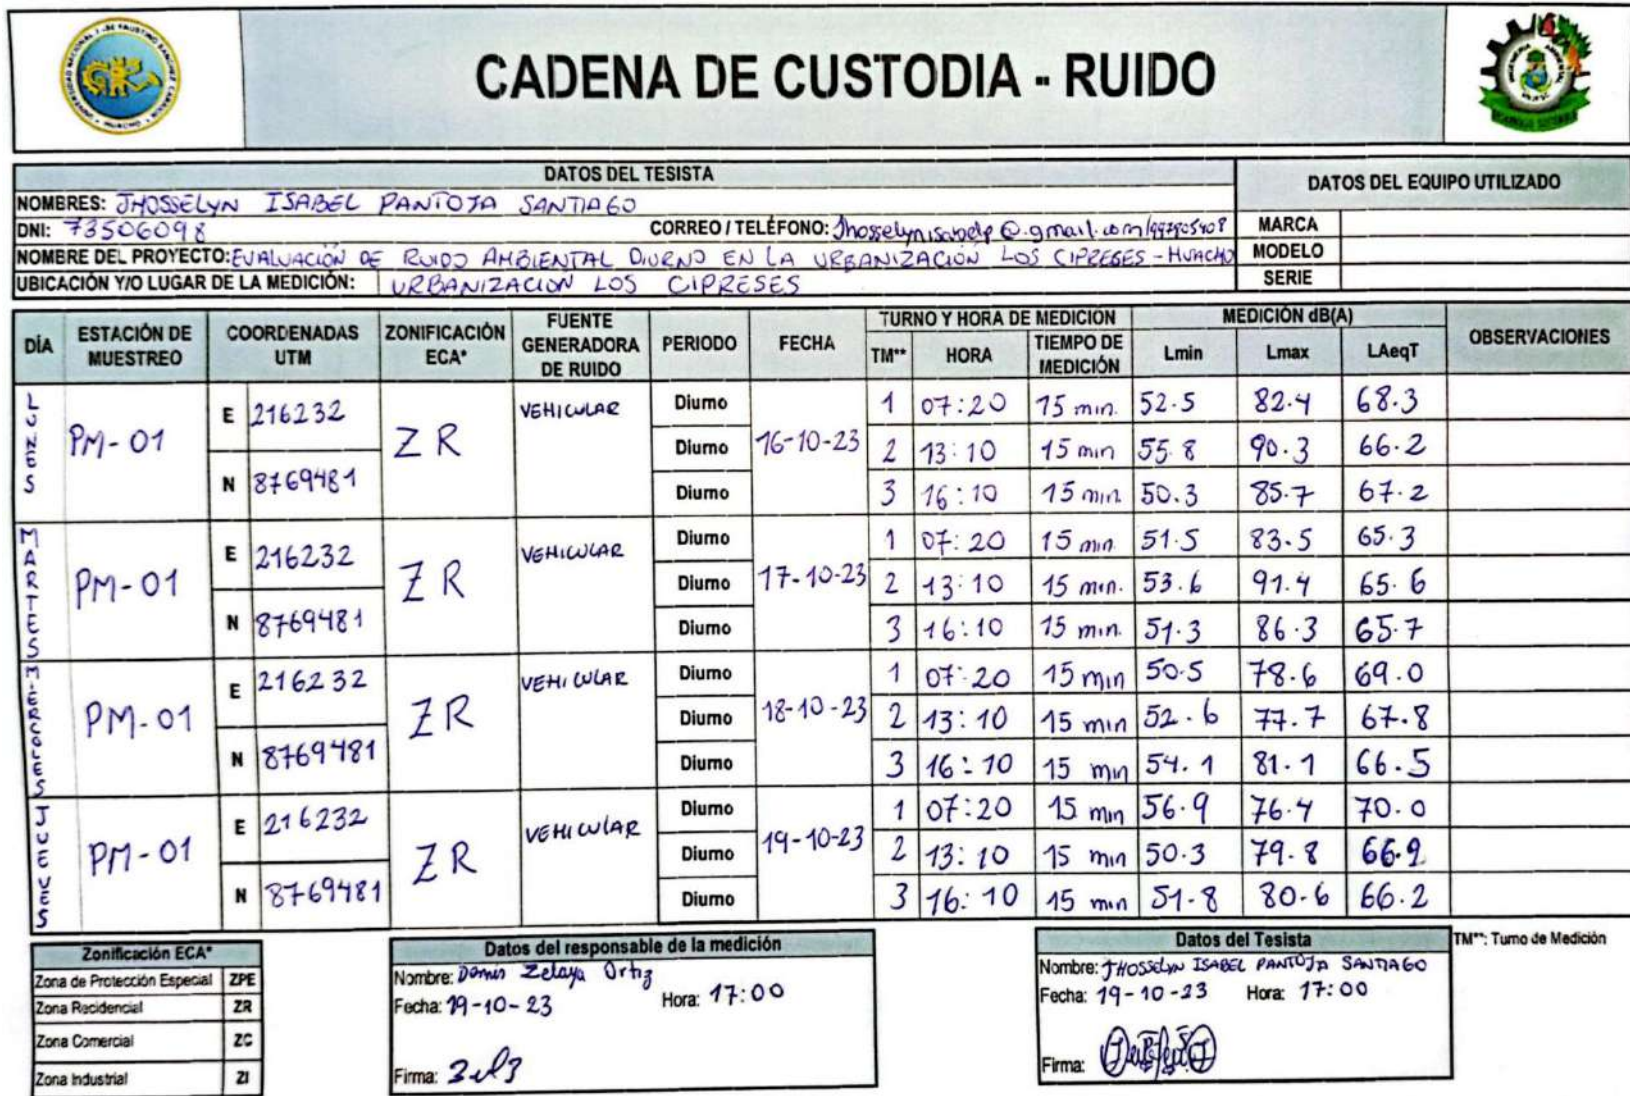 CADENA DE CUSTODIA - RUIDO
DATOS DEL TESISTA
DATOS DEL EQUIPO UTILIZADO
NOMBRES: JHOSSELYN ISABEL PANTOJA SANTIAGO
DNI: 73506098 CORREO / TELÉFONO: Jhosselynisabelp@gmail.com/997905408
MARCA
NOMBRE DEL PROYECTO: EVALUACIÓN DE RUIDO AMBIENTAL DIURNO EN LA URBANIZACIÓN LOS CIPRESES - HUACHO
MODELO
UBICACIÓN Y/O LUGAR DE LA MEDICIÓN: URBANIZACION LOS CIPRESES
SERIE
DÍA ESTACIÓN DE MUESTREO COORDENADAS UTM ZONIFICACIÓN ECA* FUENTE GENERADORA DE RUIDO PERIODO FECHA TURNO Y HORA DE MEDICIÓN MEDICIÓN dB(A) OBSERVACIONES
TM** HORA TIEMPO DE MEDICIÓN Lmin Lmax LAeqT
LUNES PM-01 E 216232 N 8769481 ZR VEHICULAR 16-10-23
Diurno 1 07:20 15 min. 52.5 82.4 68.3
Diurno 2 13:10 15 min 55.8 90.3 66.2
Diurno 3 16:10 15 min 50.3 85.7 67.2
MARTES PM-01 E 216232 N 8769481 ZR VEHICULAR 17-10-23
Diurno 1 07:20 15 min. 51.5 83.5 65.3
Diurno 2 13:10 15 min. 53.6 91.4 65.6
Diurno 3 16:10 15 min. 51.3 86.3 65.7
MIERCOLES PM-01 E 216232 N 8769481 ZR VEHICULAR 18-10-23
Diurno 1 07:20 15 min 50.5 78.6 69.0
Diurno 2 13:10 15 min 52.6 77.7 67.8
Diurno 3 16:10 15 min 54.1 81.1 66.5
JUEVES PM-01 E 216232 N 8769481 ZR VEHICULAR 19-10-23
Diurno 1 07:20 15 min 56.9 76.4 70.0
Diurno 2 13:10 15 min 50.3 79.8 66.9
Diurno 3 16:10 15 min 51.8 80.6 66.2
Zonificación ECA*
Zona de Protección Especial ZPE
Zona Recidencial ZR
Zona Comercial ZC
Zona Industrial ZI
Datos del responsable de la medición
Nombre: Zelaya Ortiz
Fecha: 19-10-23 Hora: 17:00
Firma:
Datos del Tesista
Nombre: JHOSSELYN ISABEL PANTOJA SANTIAGO
Fecha: 19-10-23 Hora: 17:00
Firma:
TM**: Turno de Medición